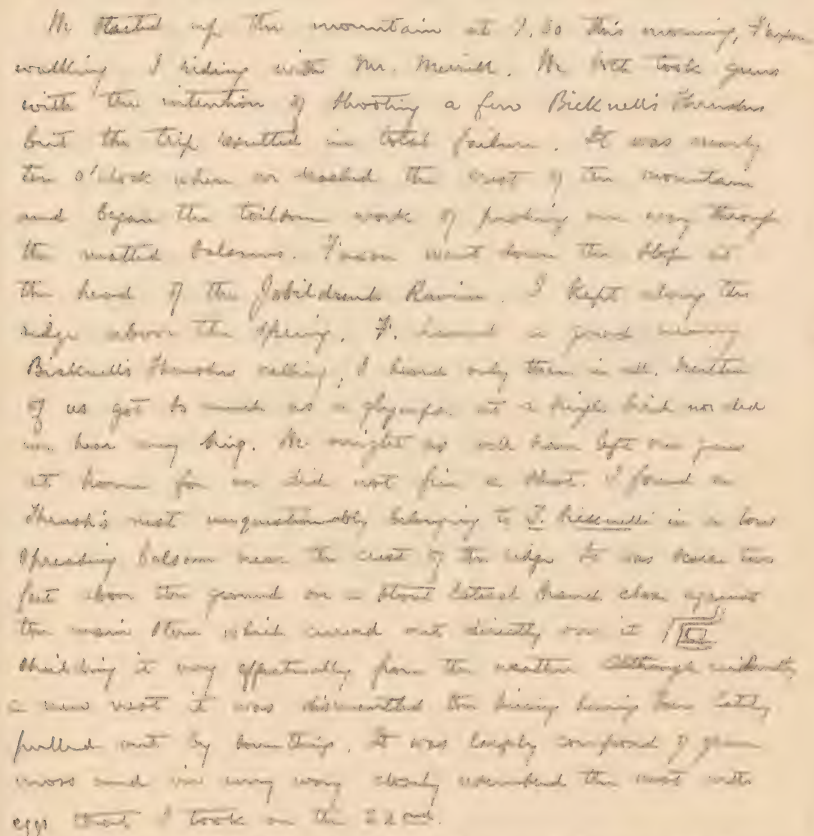 We started up the mountain at 7.30 this morning, Faxon
walking I riding with Mr. Merrill. We both took guns
with the intention of shooting a few Bicknell's Thrushes
but the trip resulted in total failure. It was nearly
ten o'clock when we reached the crest of the mountain
and began the toilsome work of pushing our way through
the matted balsams. Faxon went down the slope at
the head of the Jobildunk Ravine. I kept along the
ridge above the spring. F. heard a good many
Bicknell's Thrushes calling, I heard only three in all. Neither
of us got so much as a glympse at a single bird nor did
we hear any sing. We might as well have left our guns
at home for we did not fire a shot. I found a
Thrush's nest unquestionably belonging to T. Bicknelli in a low
spreading balsam near the crest of the ridge It was some two
feet above the ground on a stout lateral branch close against
the main stem which curved out directly over it
shielding it very effectually from the weather although evidently
a new nest it was dismantled the lining having been lately
pulled out by something. It was largely composed of green
moss and in every way closely resembled the nest with
eggs that I took on the 22nd.